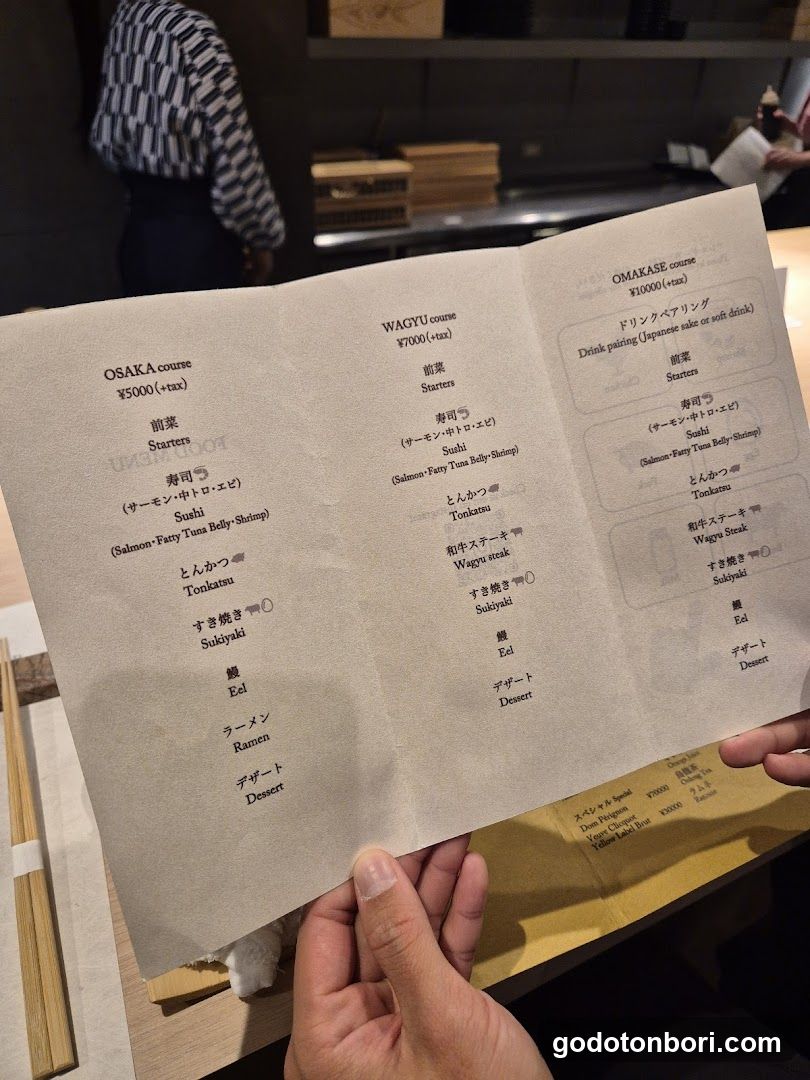 OSAKA course
¥5000(+tax)
前菜
Starters
寿司
(サーモン・中トロ・エビ)
Sushi
(Salmon・Fatty Tuna Belly・Shrimp)
とんかつ
Tonkatsu
すき焼き
Sukiyaki
鰻
Eel
ラーメン
Ramen
デザート
Dessert
WAGYU course
¥7000(+tax)
前菜
Starters
寿司
(サーモン・中トロ・エビ)
Sushi
(Salmon・Fatty Tuna Belly・Shrimp)
とんかつ
Tonkatsu
和牛ステーキ
Wagyu steak
すき焼き
Sukiyaki
鰻
Eel
デザート
Dessert
OMAKASE course
¥10000(+tax)
ドリンクペアリング
Drink pairing (Japanese sake or soft drink)
前菜
Starters
寿司
(サーモン・中トロ・エビ)
Sushi
(Salmon・Fatty Tuna Belly・Shrimp)
とんかつ
Tonkatsu
和牛ステーキ
Wagyu Steak
すき焼き
Sukiyaki
鰻
Eel
デザート
Dessert
FOOD MENU
スペシャル Special
Dom Pérignon ¥70000
Veuve Clicquot
Yellow Label Brut ¥30000
Oolong Tea
ラムネ
Ramune
godotonbori.com